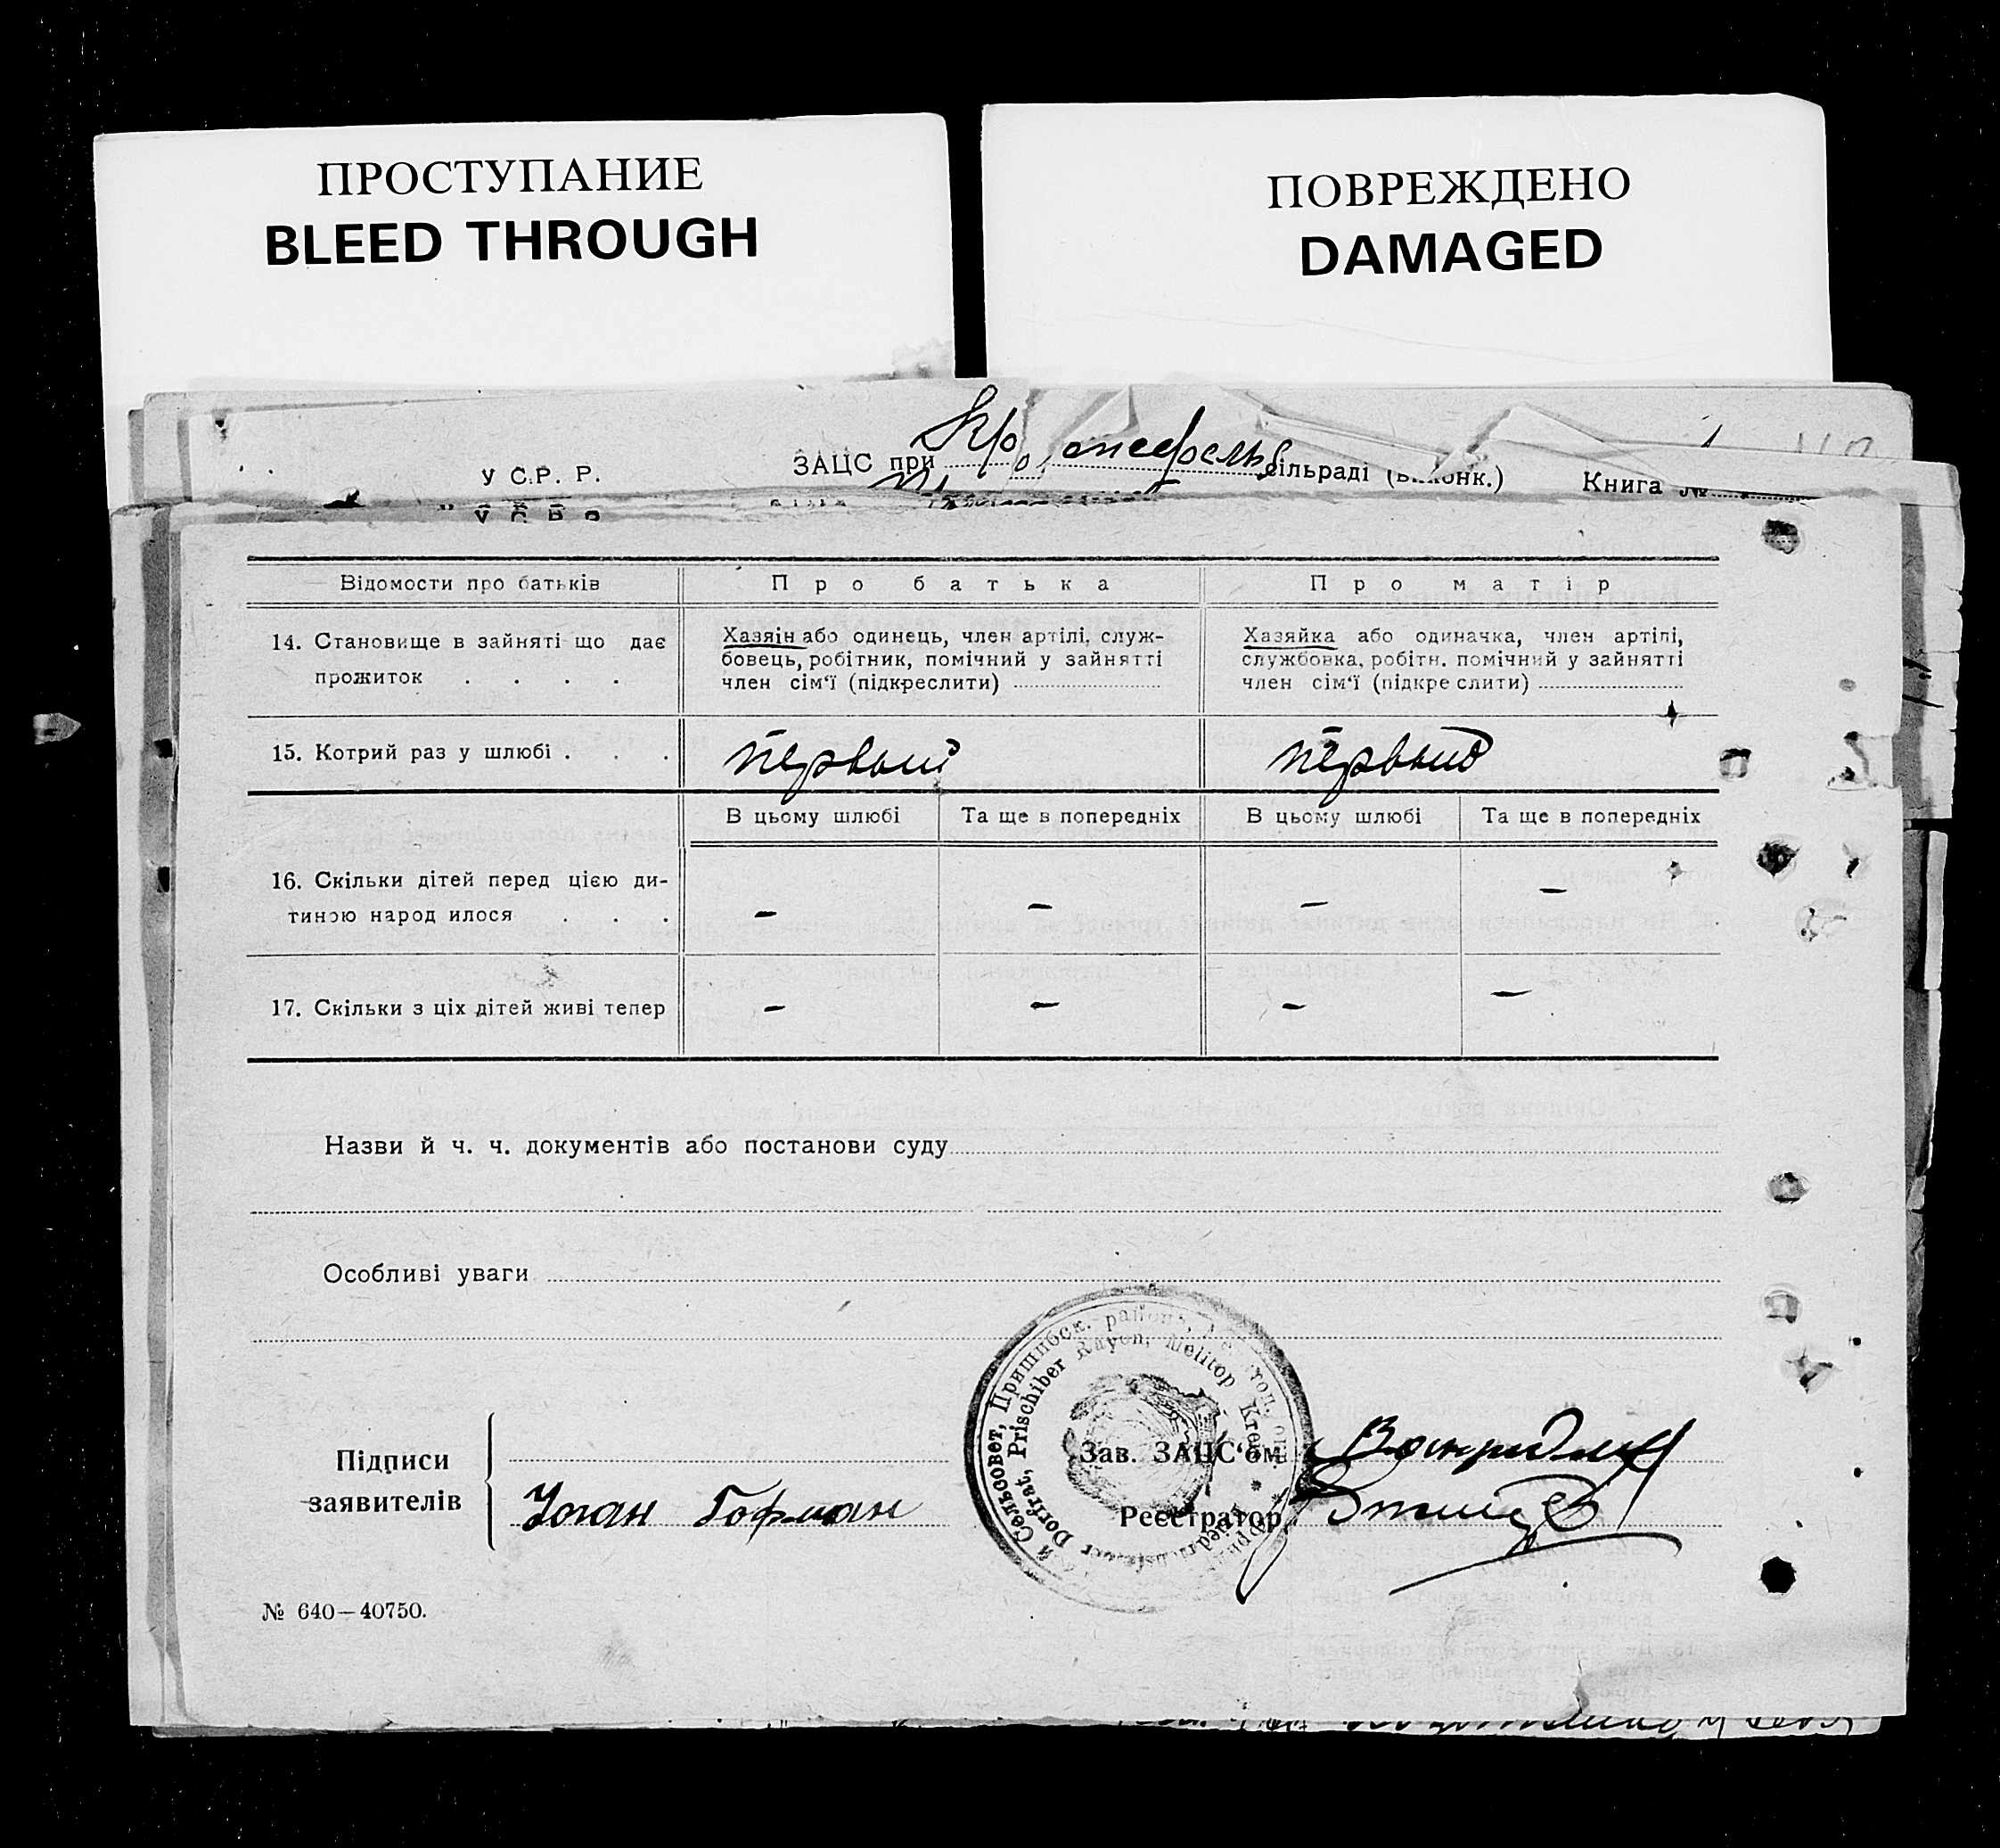 ПРОСТУПАНИЕ
BLEED THROUGH
ПОВРЕЖДЕНО
DAMAGED
У С.Р. Р.
ЗАЦС при сільраді
Книга №
Відомости про батьків
Про батька
Про матір
14. Становище в зайняті що дає
прожиток . . . .
Хазяін або одинець, член артілі, служ-
бовець, робітник, помічний у зайнятті
член сім'ї (підкреслити)
Хазяйка або одиначка, член артілі,
службовка, робітн. помічний у зайнятті
член сім'ї (підкре слити)
15. Котрий раз у шлюбі . . .
первый
первый
В цьому шлюбі
Та ще в попередніх
В цьому шлюбі
Та ще в попередніх
16. Скільки дітей перед цією ди-
тиною народ илося . . .
– – – –
17. Скільки з ціх дітей живі тепер
– – – –
Назви й ч. ч. документів або постанови суду
Особливі уваги
Сельсовет, Пришибск. района,
Dorfrat, Prischiber Rayon, Melitop Kreis
Підписи
заявителів
Иоган Гофман
Зав. ЗАЦС'ом
Реєстратор
№ 640—40750.